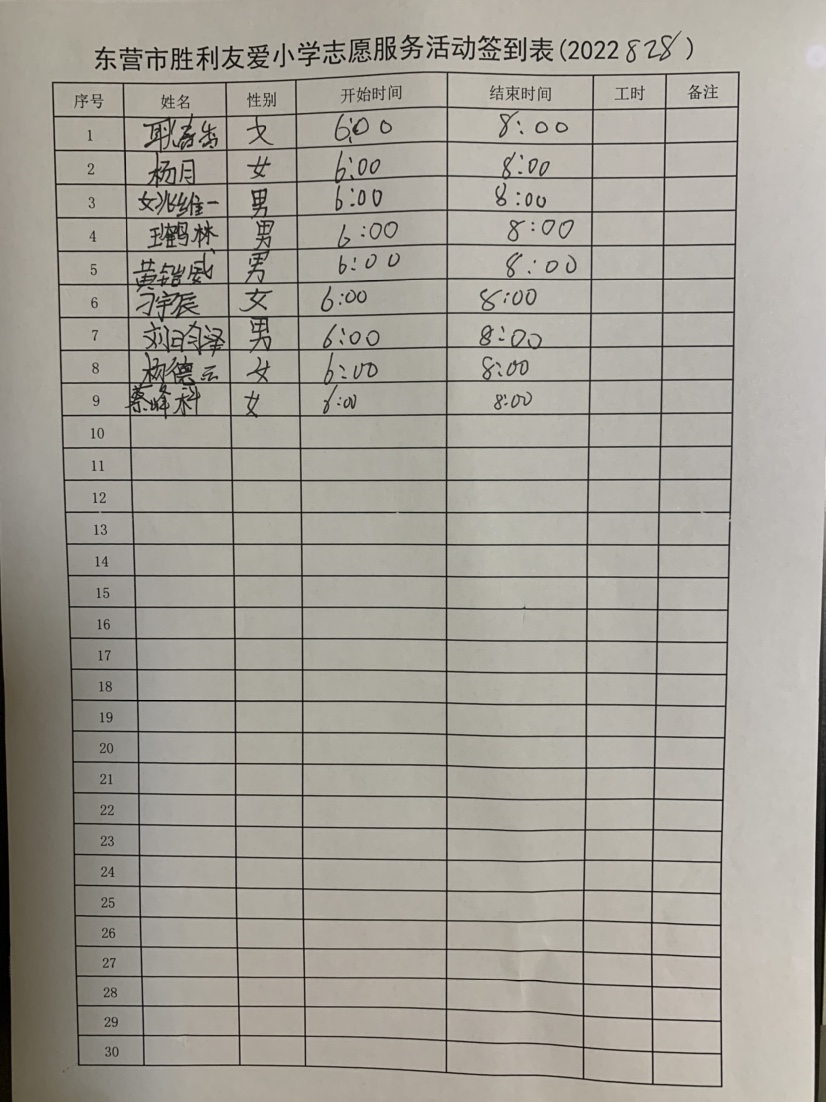 东营市胜利友爱小学志愿服务活动签到表(2022 828)
序号 姓名 性别 开始时间 结束时间 工时 备注
1 女 6:00 8:00
2 杨月 女 6:00 8:00
3 姚维一 男 6:00 8:00
4 王鹤林 男 6:00 8:00
5 黄铠威 男 6:00 8:00
6 刁宇辰 女 6:00 8:00
7 刘昀泽 男 6:00 8:00
8 杨德云 女 6:00 8:00
9 蔡峰科 女 6:00 8:00
10
11
12
13
14
15
16
17
18
19
20
21
22
23
24
25
26
27
28
29
30